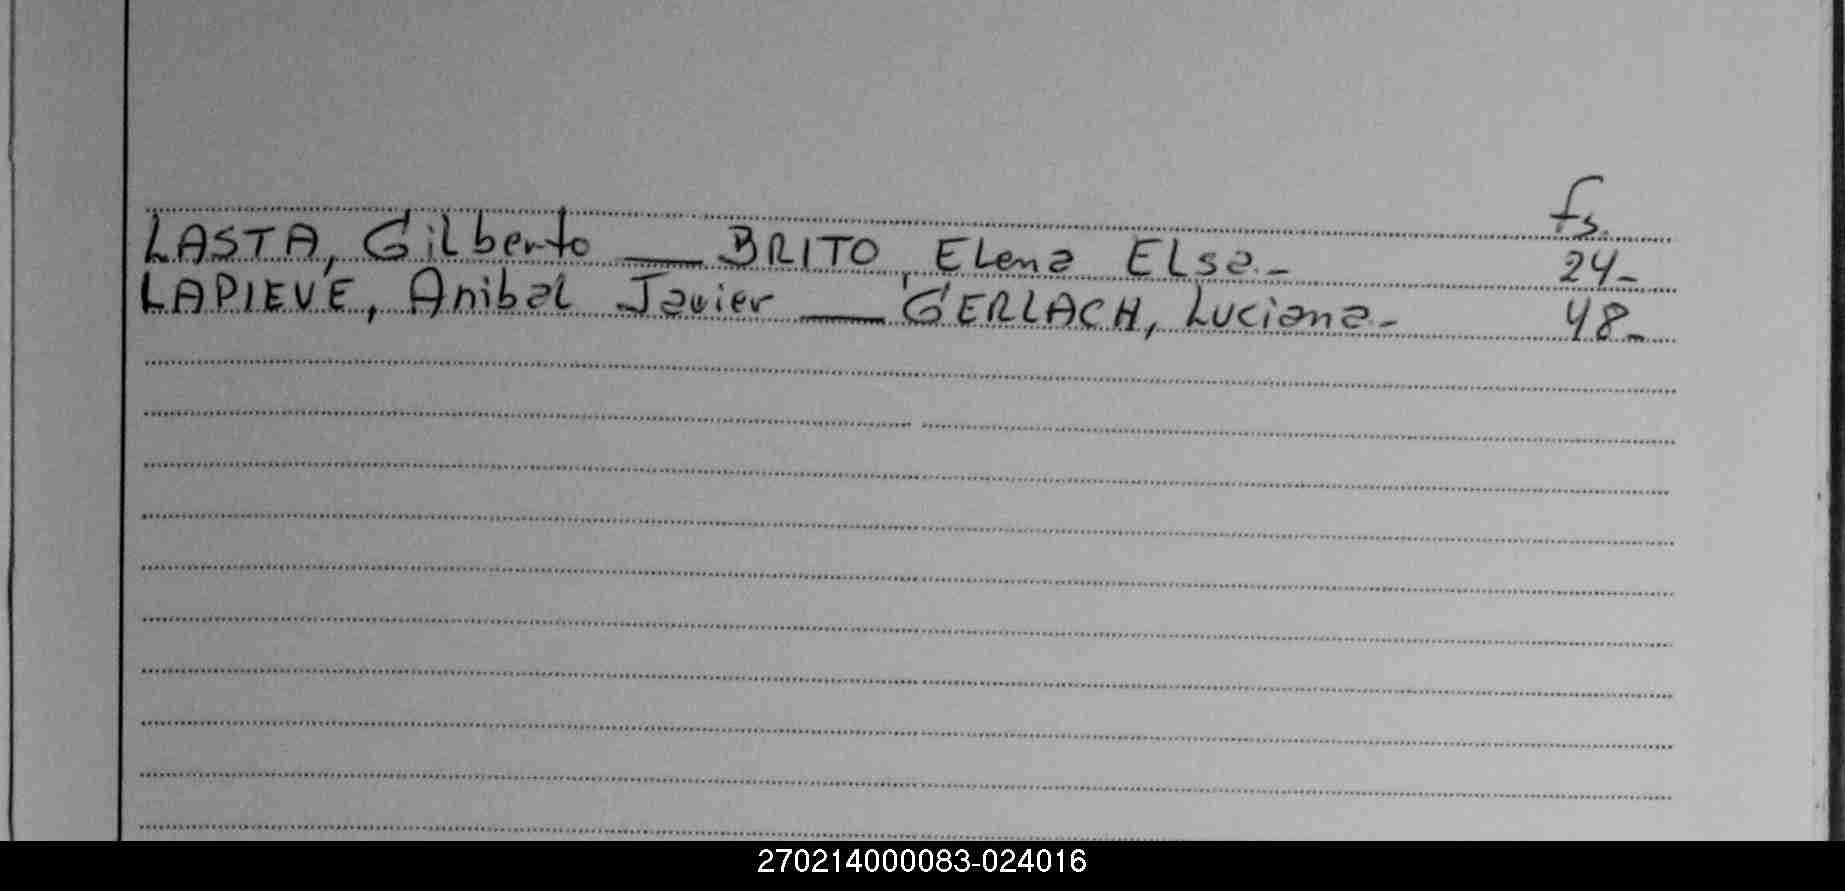 fs.
LASTA, Gilberto — BRITO, Elena Elsa.- 24-
LAPIEVE, Anibal Javier — GERLACH, Luciana.- 48-
270214000083-024016